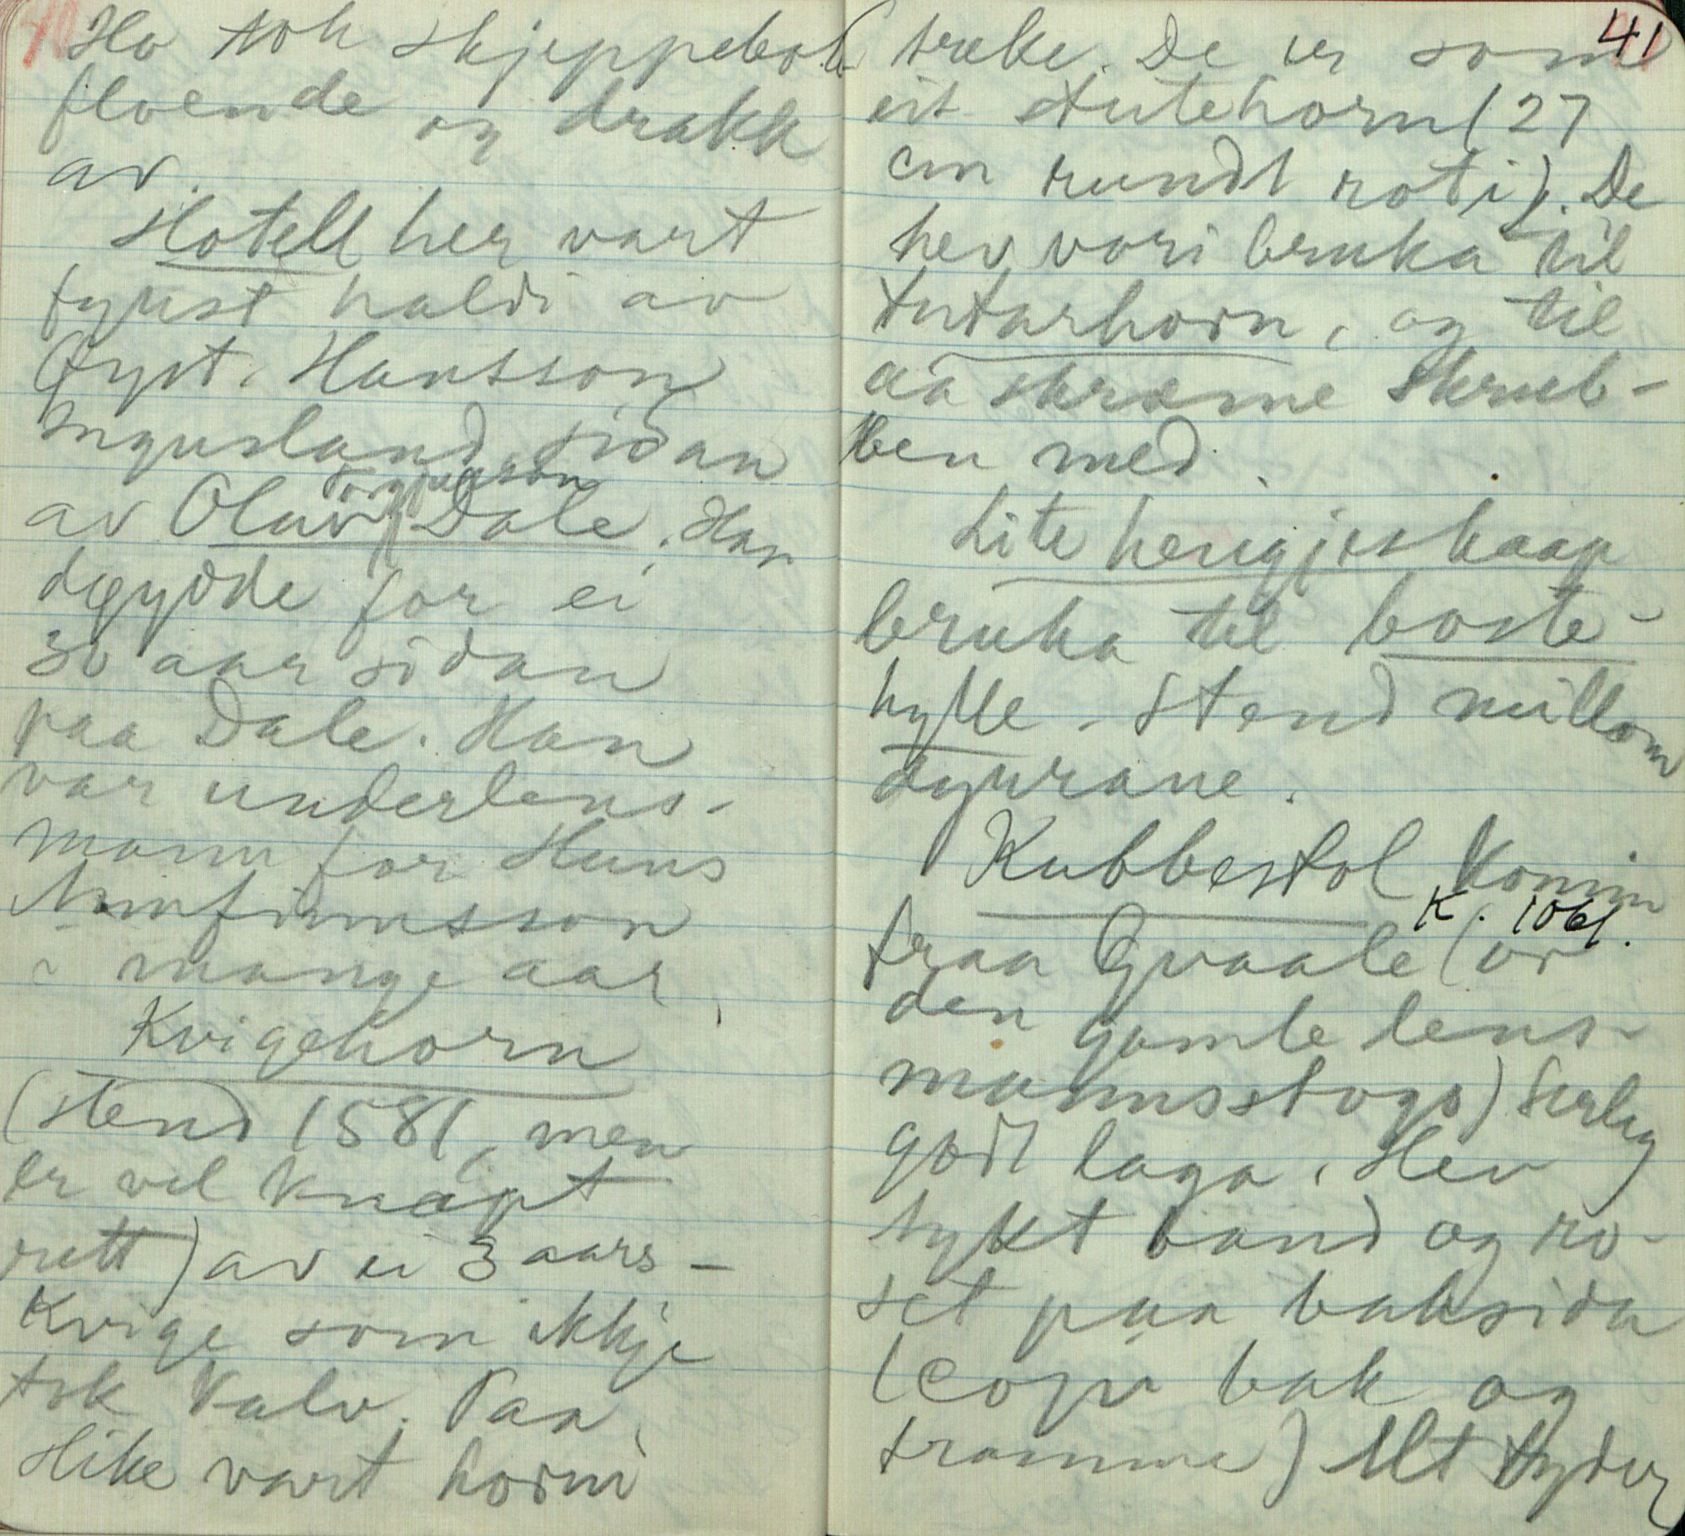 40
Ho tok skjeppeboli
floende og drakk
av.
Hotell her vart
fyrst haldi av
Øyst. Hansson
Ingusland, sidan
Torgjusson
av Oluv Dale. Han
døydde for ei
30 aar sidan
paa Dale. Han
var underlens-
mann for Hans
i mange aar.
Kvigehorn
(stend 1581, men
er vel knapt
rett) av ei 3 aars-
Kvige som ikkje
tok Kalv. Paa
slike vart horni
41
sræke. De er som
eit stutehorn (27
cm rundt roti). De
hev vori bruka til
tutarhorn, og til
aa skræme skrub-
ben med.
Lite hengjeskaap
bruka til boste-
hylle. Stend millom
dyrrane.
Kubbestol komin
K. 1061.
fraa Kvaale (or
den gamle lens-
mannsstogo) Serleg
godt laga. Hev
tykt band og ro-
set paa baksida
(Copi bak og
framme) Alt tyder